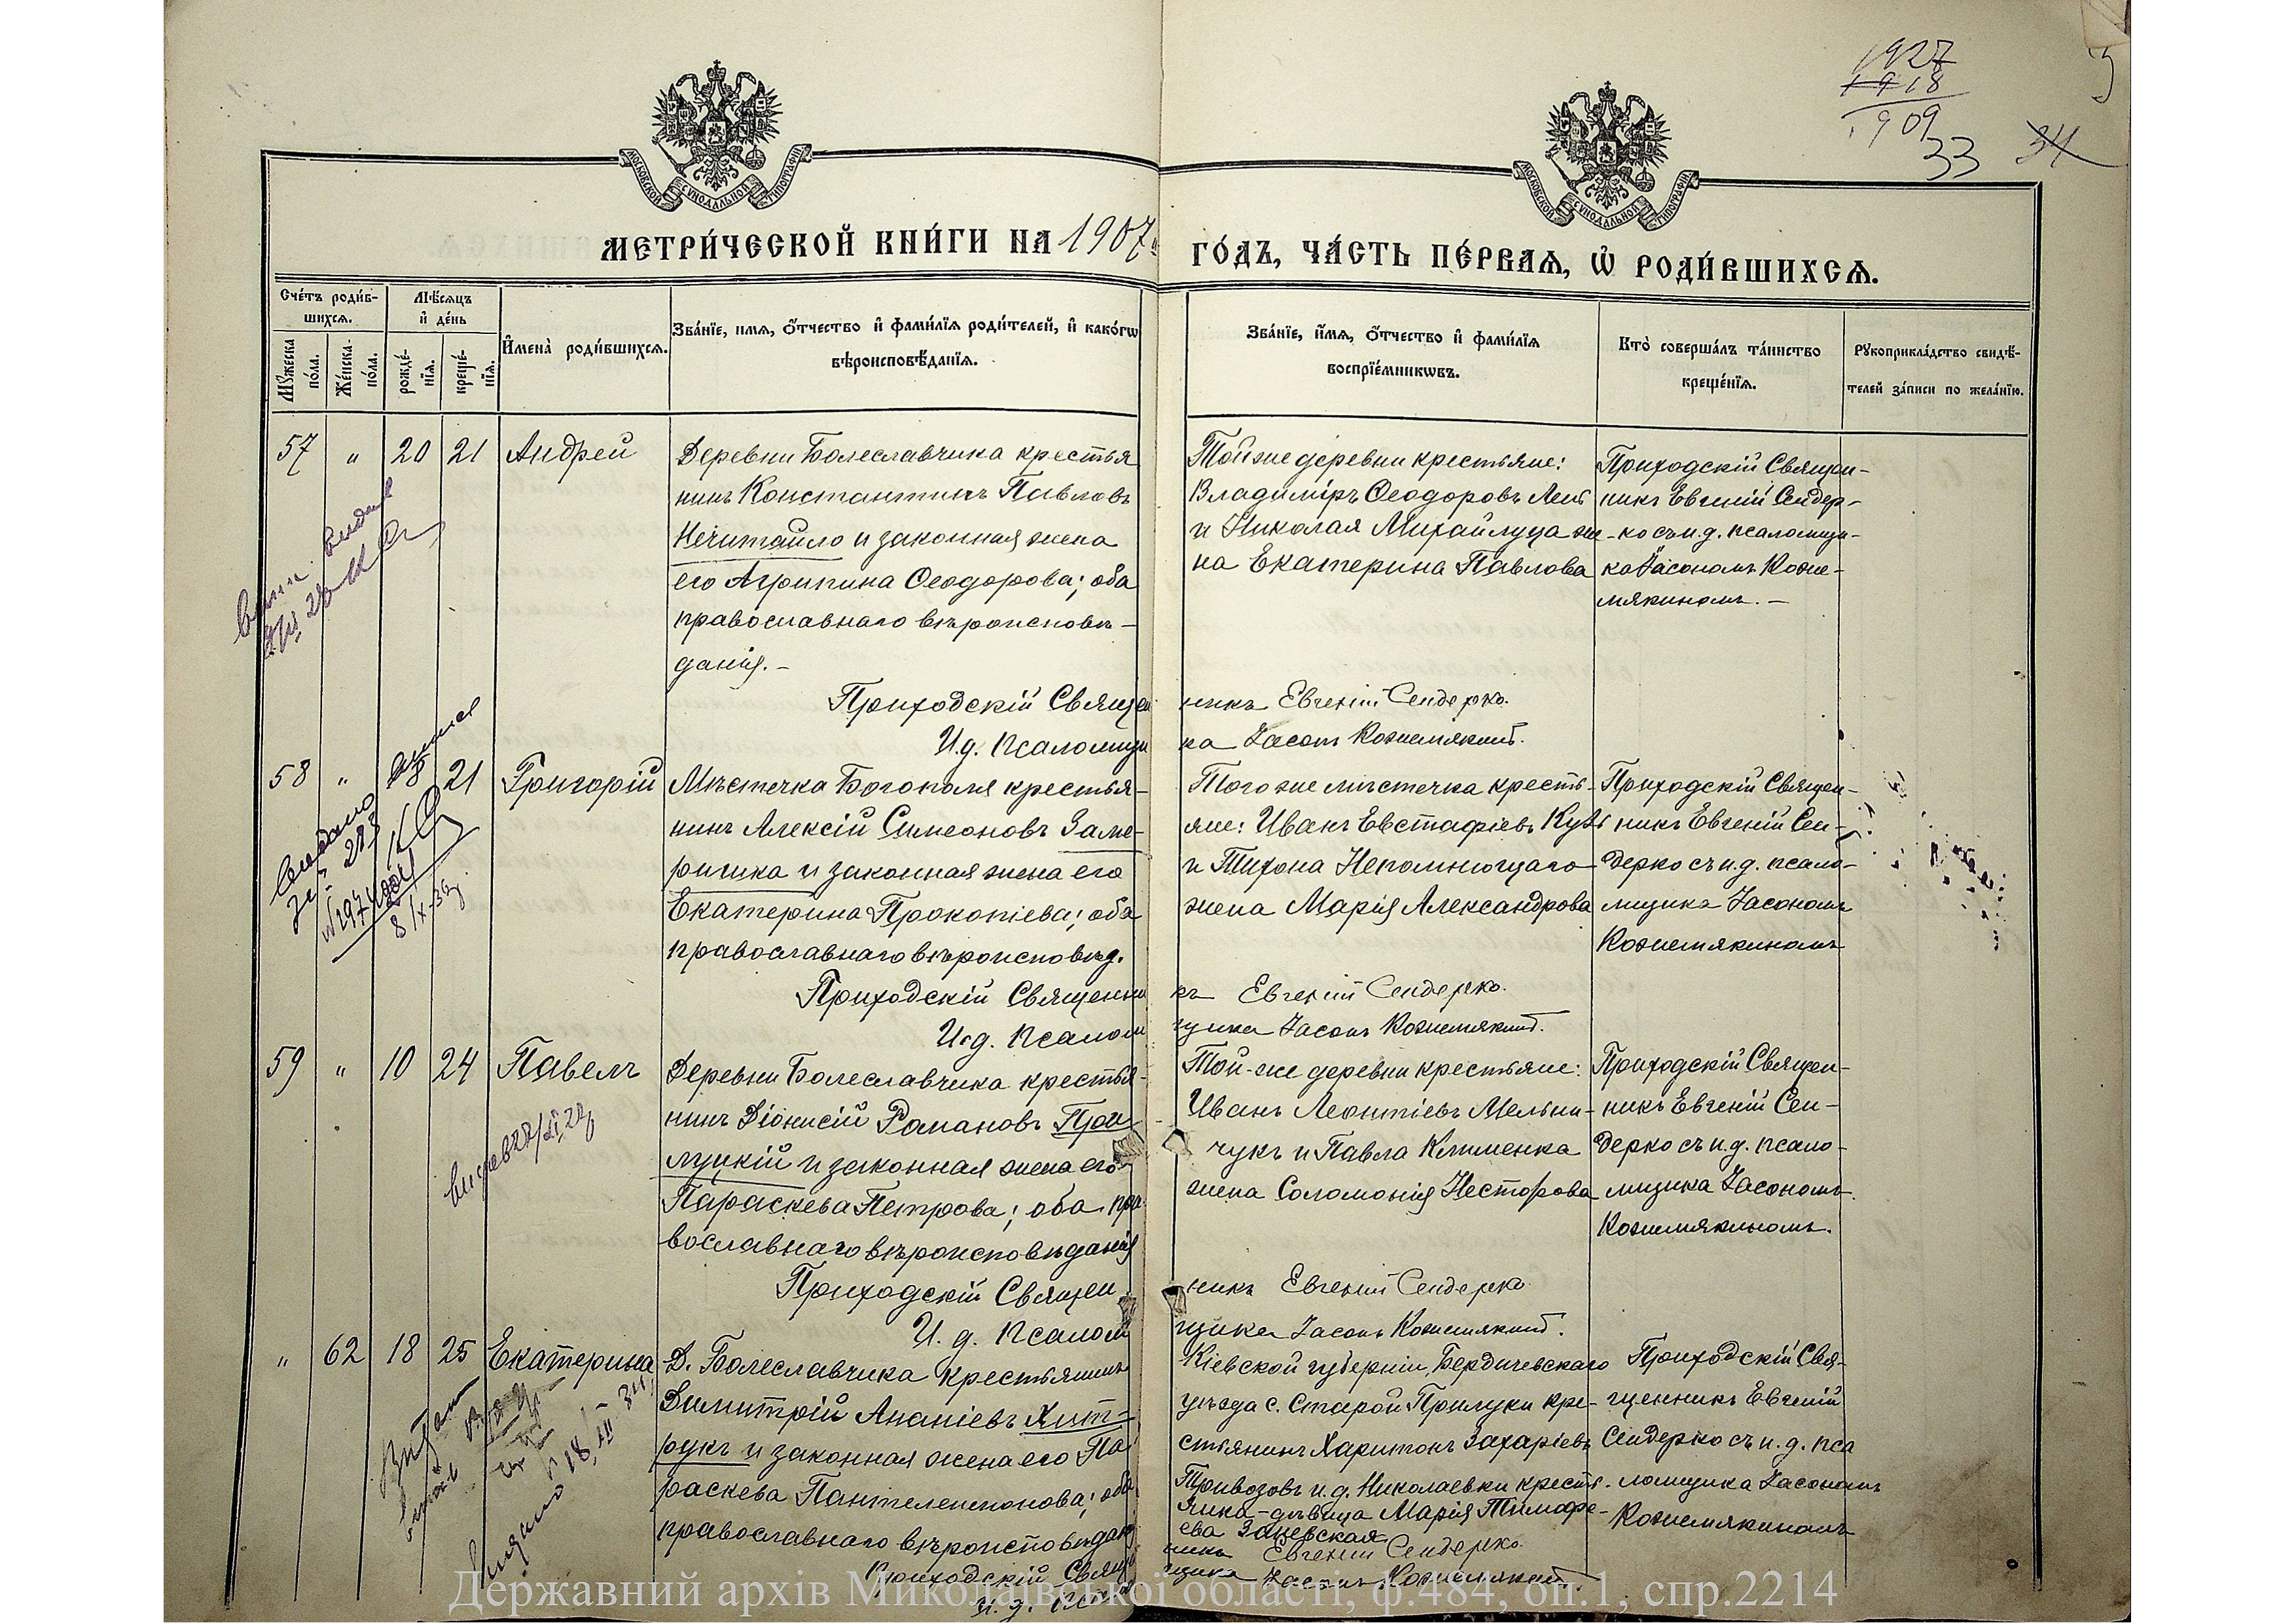 1927
1918
1909
33 34
МОСКОВСКОЙ СѴНОДАЛЬНОЙ ТИПОГРАФІИ
МОСКОВСКОЙ СѴНОДАЛЬНОЙ ТИПОГРАФІИ
МЕТРИ́ЧЕСКОЙ КНИ́ГИ НА 1907й ГО́ДЪ, ЧА́СТЬ ПЕ́РВАѦ, Ѽ РОДИ́ВШИХСѦ.
Сче́тъ роди́в-
шихсѧ.
Мѣ́сѧцъ
и҆ де́нь
Мꙋ́жеска
по́ла.
Же́нска
по́ла.
рожде́-
нїѧ.
креще́-
нїѧ.
И҆мена̀ роди́вшихсѧ.
Зва́нїе, имѧ, о҆́тчество и҆ фами́лїѧ роди́телей, и҆ како́гѡ
вѣроисповѣ́данїѧ.
Зва́нїе, и҆́мѧ, о҆́тчество и҆ фами́лїѧ
воспрїе́мникѡвъ.
Кто̀ соверша́лъ та́инство
креще́нїѧ.
Рꙋкоприкла́дство свидѣ́-
телей за́писи по жела́нїю.
57 " 20 21 Андрей
Деревни Болеславчика крестья-
нинъ Константинъ Павловъ
Нечитайло и законная жена
его Агрипина Ѳеодорова; оба
православнаго вѣроисповѣ-
данія.
Той же деревни крестьяне:
Владиміръ Ѳеодоровъ
и Николая Михайлуца же-
на Екатерина Павлова
Приходскій Священ-
никъ Евгеній Сендер-
ко съ и.д. псаломщи-
ка Іасономъ Коже-
мякиномъ.
Приходскій Священникъ Евгеній Сендерко.
И.д. Псаломщика Іасонъ Кожемякинъ.
58 " 18 21 Григорій
Мѣстечка Богополя крестья-
нинъ Алексій Симеоновъ Заме-
ригика и законная жена его
Екатерина Прокопіева; оба
православнаго вѣроисповѣд.
Того же мѣстечка кресть-
яне: Иванъ Евстафіевъ
и Тихона Непомнющаго
жена Марія Александрова
Приходскій Священ-
никъ Евгеній Сен-
дерко съ и.д. псало-
мщика Іасономъ
Кожемякиномъ
Приходскій Священникъ Евгеній Сендерко.
И.д. Псаломщика Іасонъ Кожемякинъ.
59 " 10 24 Павелъ
Деревни Болеславчика крестья-
нинъ Діонисій Романовъ При-
луцкій и законная жена его
Параскева Петрова; оба пра-
вославнаго вѣроисповѣданія
Той-же деревни крестьяне:
Иванъ Леонтіевъ Мельни-
чукъ и Павла Клименка
жена Соломонія Несторова
Приходскій Священ-
никъ Евгеній Сен-
дерко съ и.д. псало-
мщика Іасономъ
Кожемякиномъ.
Приходскій Священникъ Евгеній Сендерко
И.д. Псаломщика Іасонъ Кожемякинъ.
" 62 18 25 Екатерина
Д. Болеславчика крестьянинъ
Димитрій Ананіевъ Хит-
рукъ и законная жена его Па-
раскева Пантелеимонова; оба
православнаго вѣроисповѣдан.
Кіевской губерніи, Бердичевскаго
уѣзда с. Старой Прилуки кре-
стьянинъ Харитонъ Захаріевъ
Тривозовъ и д. Николаевки кресть-
янка-дѣвица Марія Тимофе-
ева Заневская
Приходскій Свя-
щенникъ Евгеній
Сендерко съ и.д. пса
ломщика Іасономъ
Кожемякиномъ
Приходскій Священникъ Евгеній Сендерко.
И.д. Псаломщика Іасонъ Кожемякинъ.
Державний архів Миколаївської області, ф.484, оп.1, спр.2214